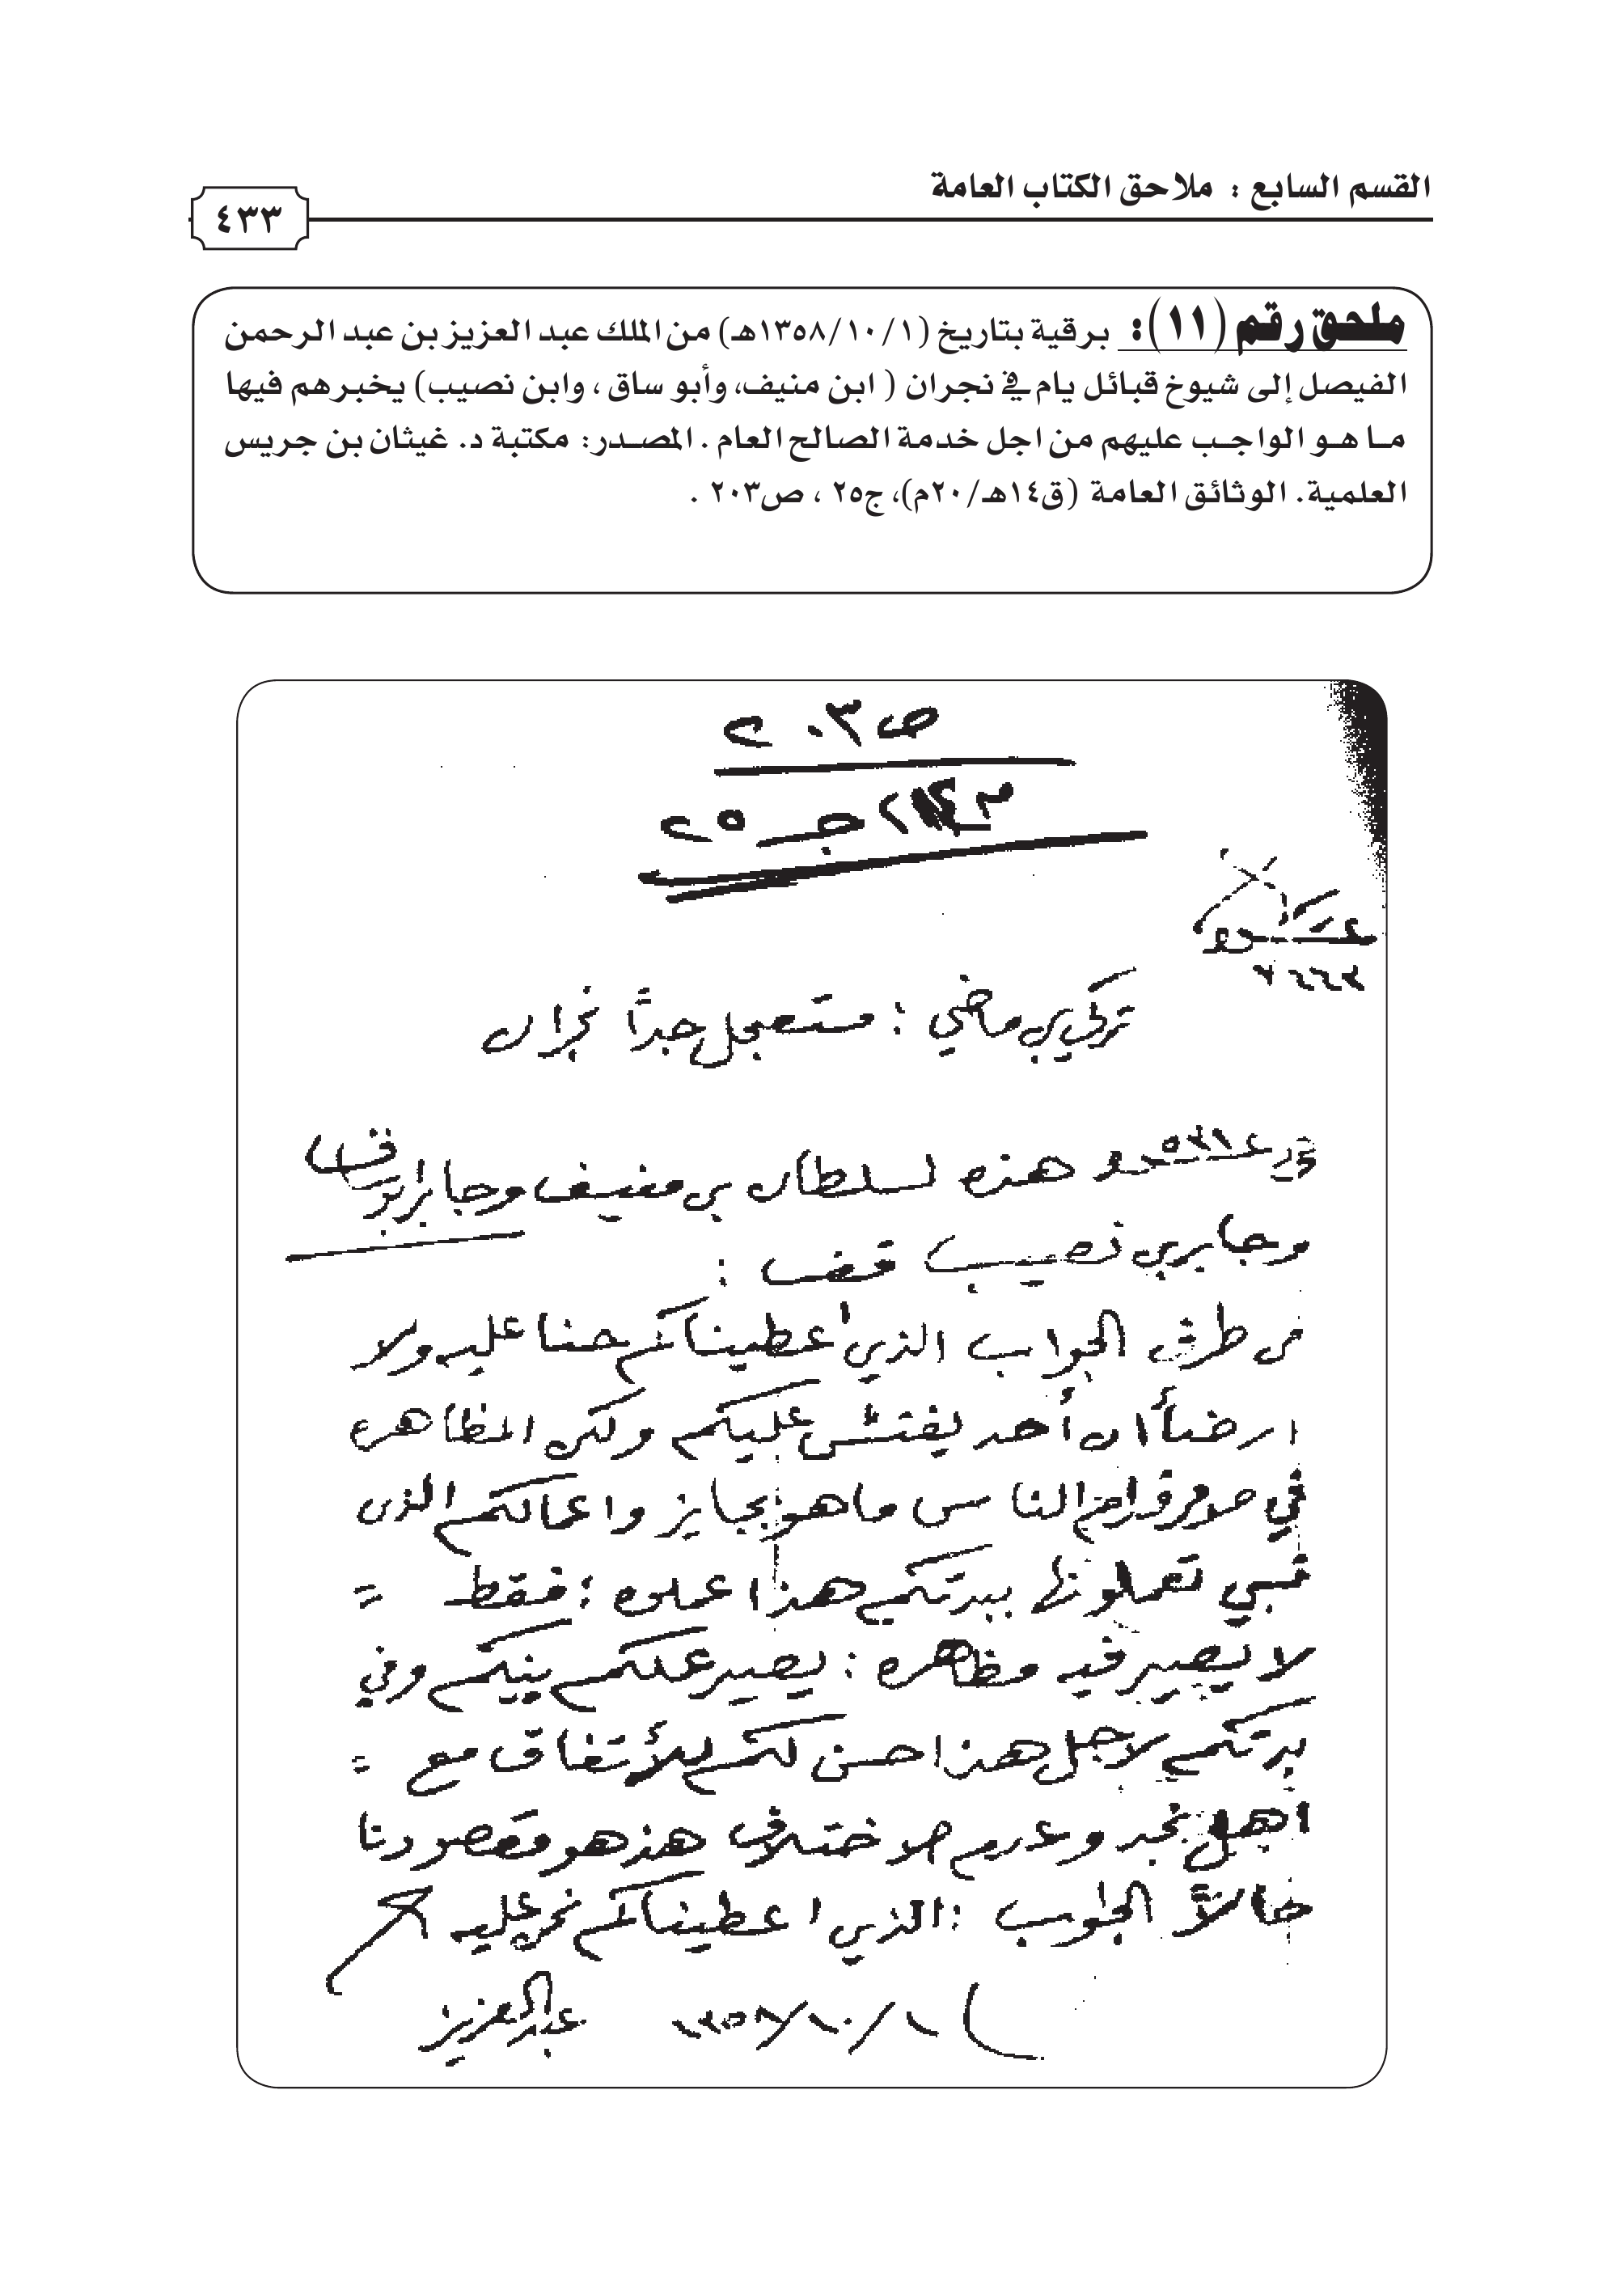 القسم السابع : ملاحق الكتاب العامة
٤٣٣
ملحق رقم (١١): برقية بتاريخ (١٣٥٨/١٠/١هـ) من الملك عبد العزيز بن عبد الرحمن
الفيصل إلى شيوخ قبائل يام في نجران ( ابن منيف، وأبو ساق ، وابن نصيب) يخبرهم فيها
ما هو الواجب عليهم من اجل خدمة الصالح العام . المصدر: مكتبة د. غيثان بن جريس
العلمية. الوثائق العامة (ق١٤هـ/٢٠م)، ج٢٥ ، ص٢٠٣ .
ص٢٠٣
جـ ٢٥
تركي بن ماضي : مستعجل جداً نجران
هذه لسلطان بن منيف وجابر ابو ساق
وجابر بن نصيب فقط :
من طرف الجواب الذي اعطيناكم حنا عليه ولا
ارضا ان أحد يفتش عليكم ولكن المظاهره
في الناس ما هو بجايز واعمالكم الذى
تعملونها ببرتكم هذا عملوه : فقط =
لا يصير فيه مظاهره : يصير عملكم بينكم وفي
برتكم لاجل هذا احسن لكم للأتفاق مع =
أهل نجد وعدم الاختلاف هذ هو مقصودنا
حالاً الجواب : الذي اعطيناكم نحن عليه
١٣٥٨/١٠/١ عبد العزيز